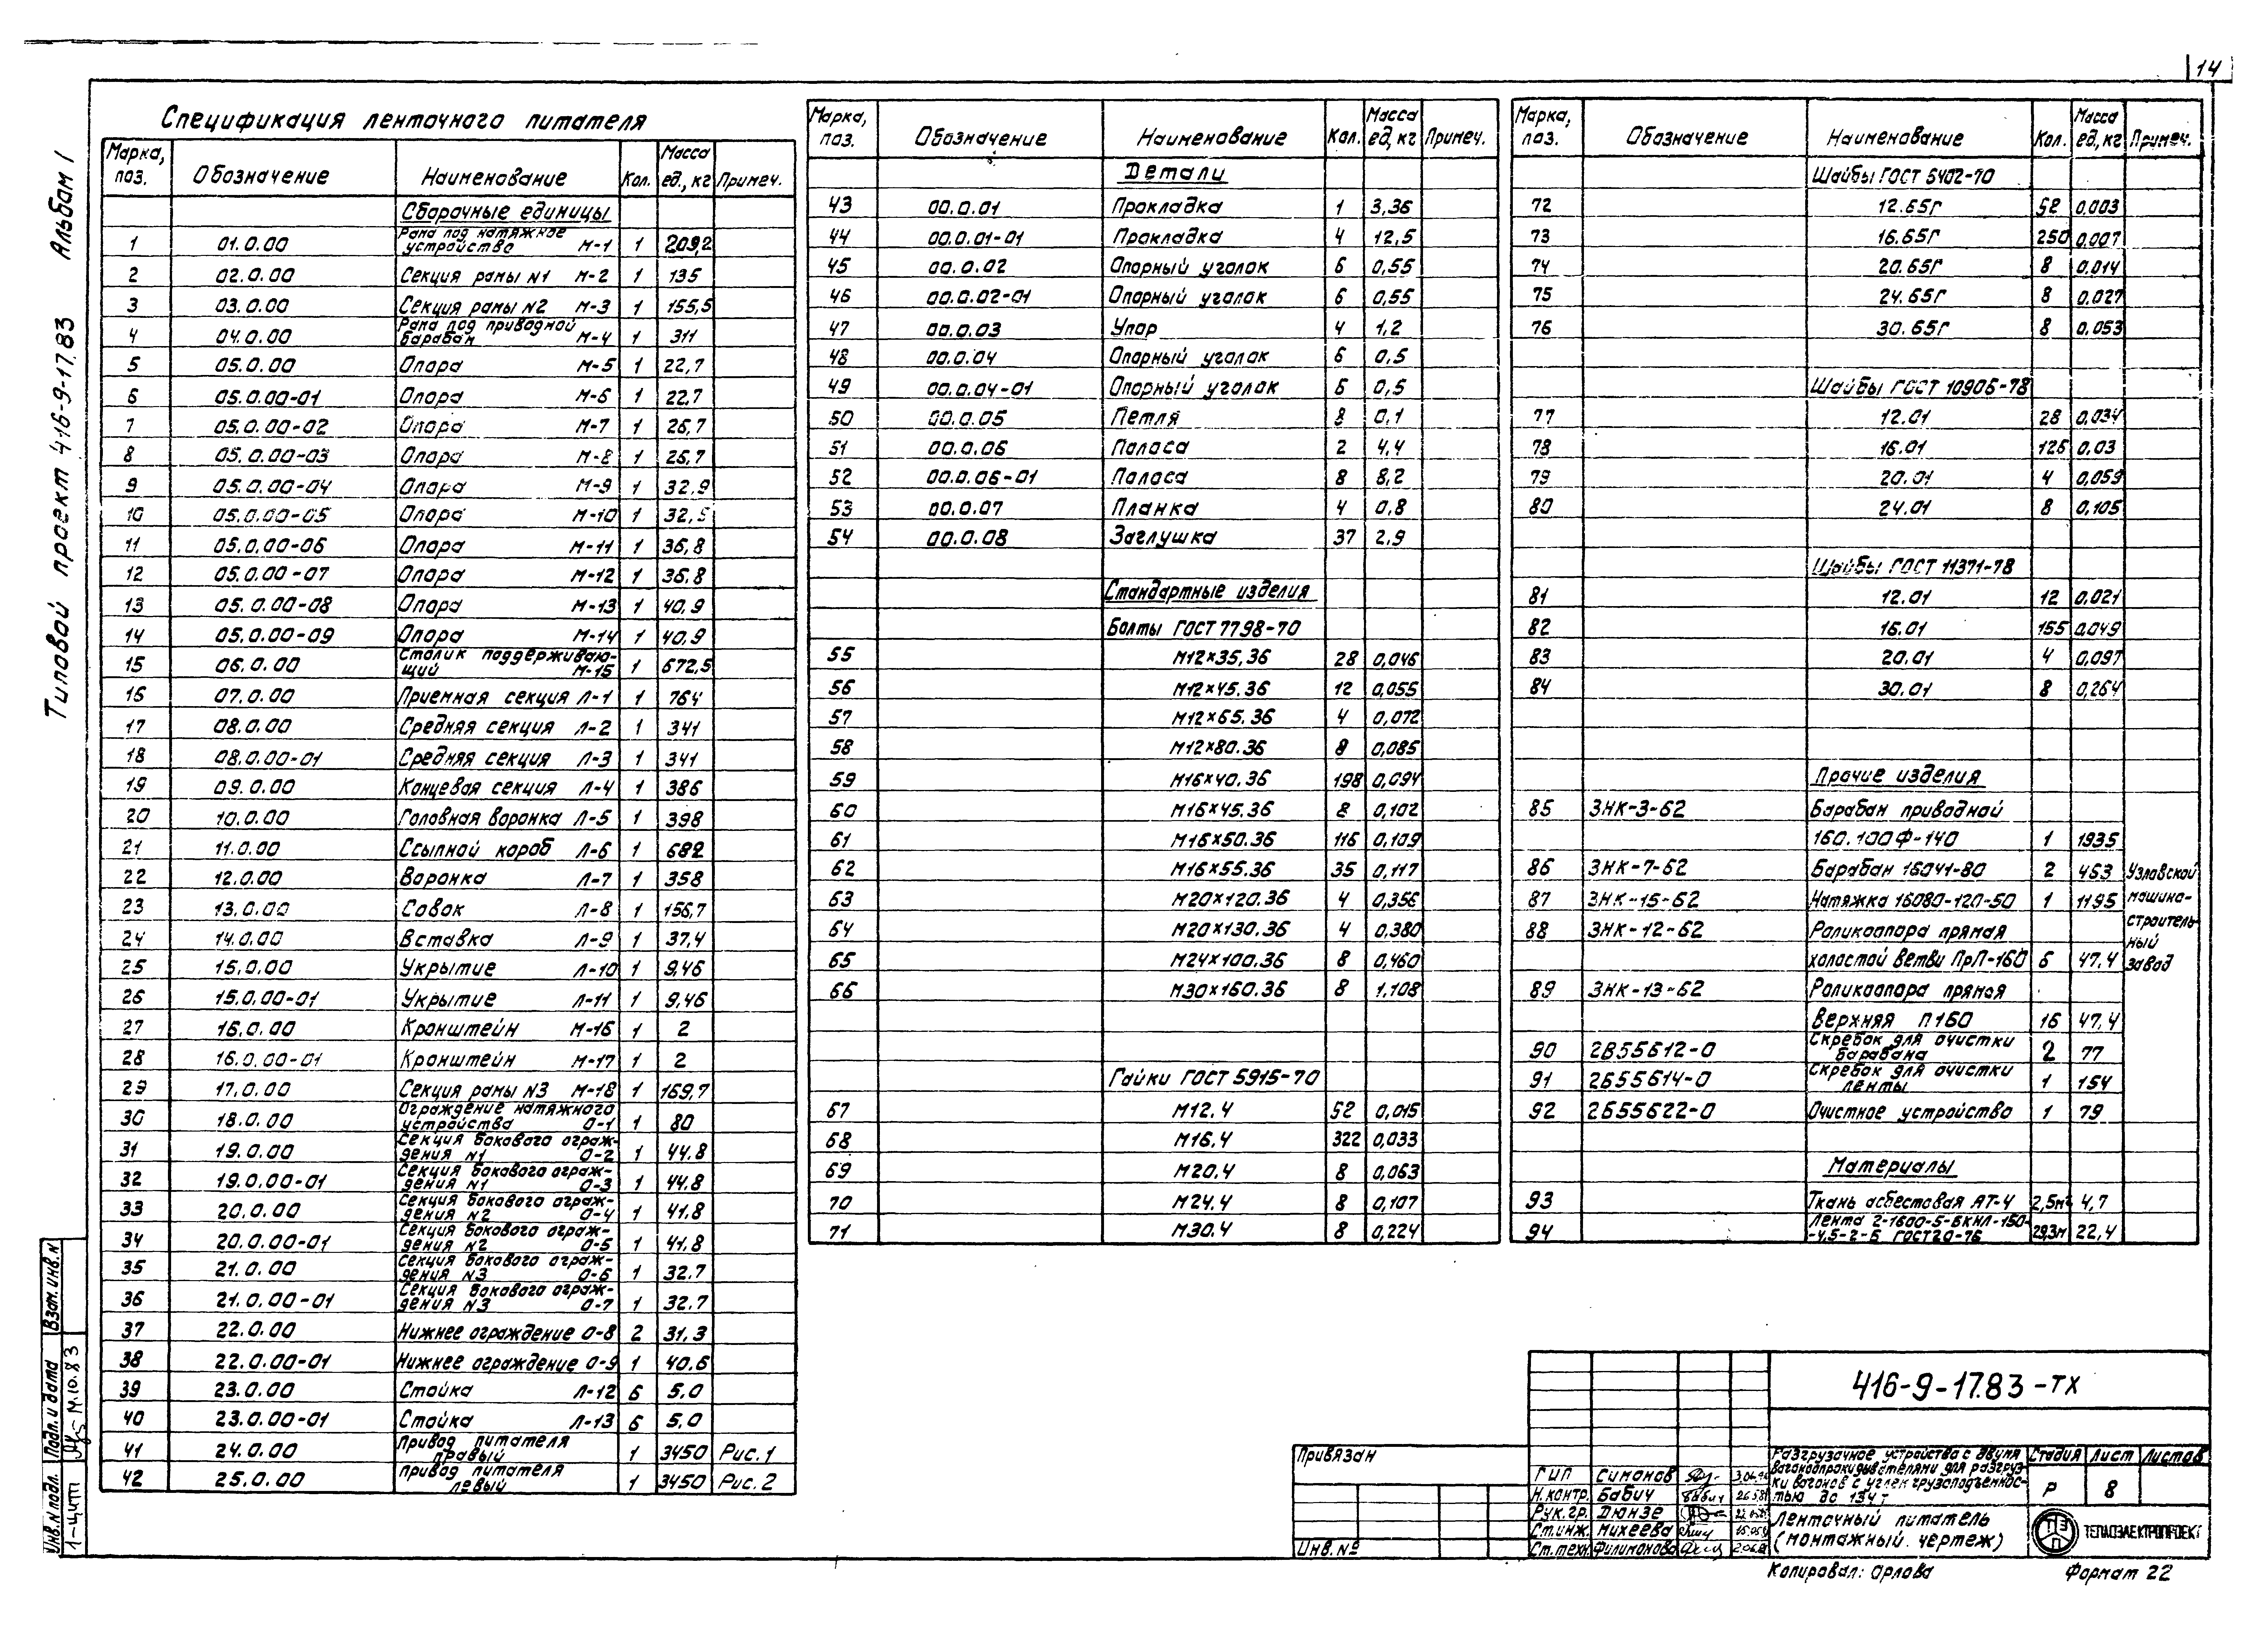 14
Типовой проект 416-9-17.83 Альбом I
Спецификация ленточного питателя
Марка, поз. Обозначение Наименование Кол. Масса ед., кг Примеч.
Сборочные единицы
1 01.0.00 Рама под натяжное устройство М-1 1 209,2
2 02.0.00 Секция рамы N1 М-2 1 135
3 03.0.00 Секция рамы N2 М-3 1 155,5
4 04.0.00 Рама под приводной барабан М-4 1 311
5 05.0.00 Опора М-5 1 22,7
6 05.0.00-01 Опора М-6 1 22,7
7 05.0.00-02 Опора М-7 1 26,7
8 05.0.00-03 Опора М-8 1 26,7
9 05.0.00-04 Опора М-9 1 32,9
10 05.0.00-05 Опора М-10 1 32,9
11 05.0.00-06 Опора М-11 1 36,8
12 05.0.00-07 Опора М-12 1 36,8
13 05.0.00-08 Опора М-13 1 40,9
14 05.0.00-09 Опора М-14 1 40,9
15 06.0.00 Столик поддерживаю-щий М-15 1 672,5
16 07.0.00 Приемная секция Л-1 1 764
17 08.0.00 Средняя секция Л-2 1 341
18 08.0.00-01 Средняя секция Л-3 1 341
19 09.0.00 Концевая секция Л-4 1 386
20 10.0.00 Головная воронка Л-5 1 398
21 11.0.00 Ссыпной короб Л-6 1 682
22 12.0.00 Воронка Л-7 1 358
23 13.0.00 Совок Л-8 1 156,7
24 14.0.00 Вставка Л-9 1 37,4
25 15.0.00 Укрытие Л-10 1 9,46
26 15.0.00-01 Укрытие Л-11 1 9,46
27 16.0.00 Кронштейн М-16 1 2
28 16.0.00-01 Кронштейн М-17 1 2
29 17.0.00 Секция рамы N3 М-18 1 169,7
30 18.0.00 Ограждение натяжного устройства О-1 1 80
31 19.0.00 Секция бокового ограж-дения N1 О-2 1 44.8
32 19.0.00-01 Секция бокового ограж-дения N1 О-3 1 44.8
33 20.0.00 Секция бокового ограж-дения N2 О-4 1 41.8
34 20.0.00-01 Секция бокового ограж-дения N2 О-5 1 41.8
35 21.0.00 Секция бокового ограж-дения N3 О-6 1 32.7
36 21.0.00-01 Секция бокового ограж-дения N3 О-7 1 32.7
37 22.0.00 Нижнее ограждение О-8 2 31.3
38 22.0.00-01 Нижнее ограждение О-9 1 40.6
39 23.0.00 Стойка Л-12 6 5.0
40 23.0.00-01 Стойка Л-13 6 5.0
41 24.0.00 Привод питателя правый 1 3450 Рис.1
42 25.0.00 Привод питателя левый 1 3450 Рис.2
Марка, поз. Обозначение Наименование Кол. Масса ед, кг Примеч.
Детали
43 00.0.01 Прокладка 1 3,36
44 00.0.01-01 Прокладка 4 12,5
45 00.0.02 Опорный уголок 6 0,55
46 00.0.02-01 Опорный уголок 6 0,55
47 00.0.03 Упор 4 1,2
48 00.0.04 Опорный уголок 6 0,5
49 00.0.04-01 Опорный уголок 6 0,5
50 00.0.05 Петля 8 0,1
51 00.0.06 Полоса 2 4,4
52 00.0.06-01 Полоса 8 8,2
53 00.0.07 Планка 4 0,8
54 00.0.08 Заглушка 37 2,9
Стандартные изделия
Болты ГОСТ 7798-70
55 М12×35.36 28 0,046
56 М12×45.36 12 0,055
57 М12×65.36 4 0,072
58 М12×80.36 8 0,085
59 М16×40.36 198 0,094
60 М16×45.36 8 0,102
61 М16×50.36 116 0,109
62 М16×55.36 35 0,117
63 М20×120.36 4 0,356
64 М20×130.36 4 0,380
65 М24×100.36 8 0,460
66 М30×160.36 8 1.108
Гайки ГОСТ 5915-70
67 М12.4 52 0,015
68 М16.4 322 0,033
69 М20.4 8 0,063
70 М24.4 8 0,107
71 М30.4 8 0,224
Марка, поз. Обозначение Наименование Кол. Масса ед, кг Примеч.
Шайбы ГОСТ 6402-70
72 12.65Г 52 0,003
73 16.65Г 250 0,007
74 20.65Г 8 0,014
75 24.65Г 8 0,027
76 30.65Г 8 0,053
Шайбы ГОСТ 10906-78
77 12.01 28 0,034
78 16.01 126 0,03
79 20.01 4 0,059
80 24.01 8 0,105
Шайбы ГОСТ 11371-78
81 12.01 12 0,021
82 16.01 155 0,049
83 20.01 4 0,097
84 30.01 8 0,264
Прочие изделия
85 ЗНК-3-62 Барабан приводной
160.100Ф-140 1 1935
86 ЗНК-7-62 Барабан 16041-80 2 463 Узловской
87 ЗНК-15-62 Натяжка 16080-120-50 1 1195 машино-
88 ЗНК-12-62 Роликоопора прямая строитель-
холостой ветви ПрП-160 6 47.4 ный завод
89 ЗНК-13-62 Роликоопора прямая
верхняя П160 16 47.4
90 2В55612-0 Скребок для очистки барабана 2 77
91 2Б55614-0 Скребок для очистки ленты 1 154
92 2Б55622-0 Очистное устройство 1 79
Материалы
93 Ткань асбестовая АТ-4 2,5м² 4,7
94 Лента 2-1600-5-БКНЛ-150-
-4,5-2-Б ГОСТ20-76 29,3м 22,4
Взам. инв. N
Подп. и дата М.10.83
Инв. N подл. 1-ЦТП
416-9-17.83-ТХ
Привязан
Инв. №
ГИП Симонов
Н.контр. Бабич
Рук. гр. Дюнзе
Ст.инж. Михеева
Ст.техн. Филимонова
Разгрузочное устройство с двумя
вагоноопрокидывателями для разгруз-
ки вагонов с углем грузоподъемнос-
тью до 134 т
Стадия Лист Листов
Р 8
Ленточный питатель
(монтажный чертеж)
ТЭП
ТЕПЛОЭЛЕКТРОПРОЕКТ
Копировал: Орлова Формат 22